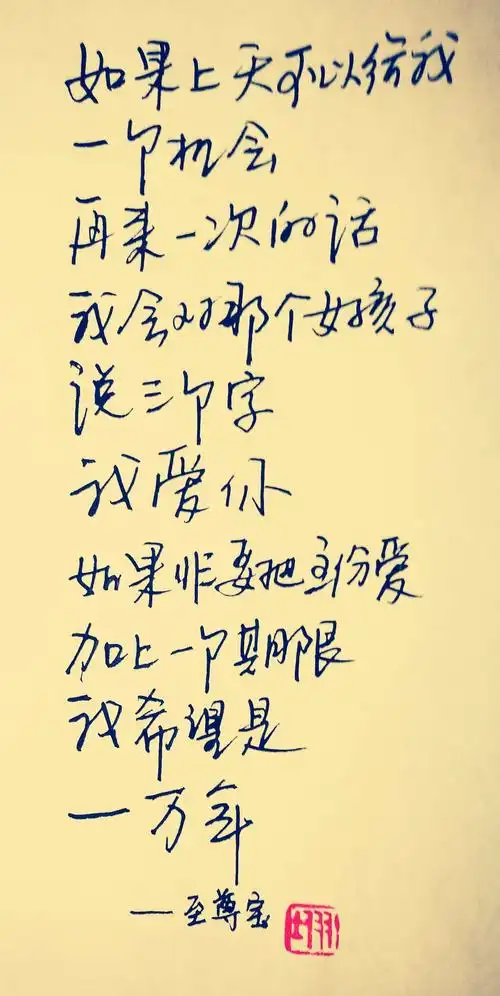 如果上天可以给我
一个机会
再来一次的话
我会对那个女孩子
说三个字
我爱你
如果非要把这份爱
加上一个期限
我希望是
一万年
——至尊宝